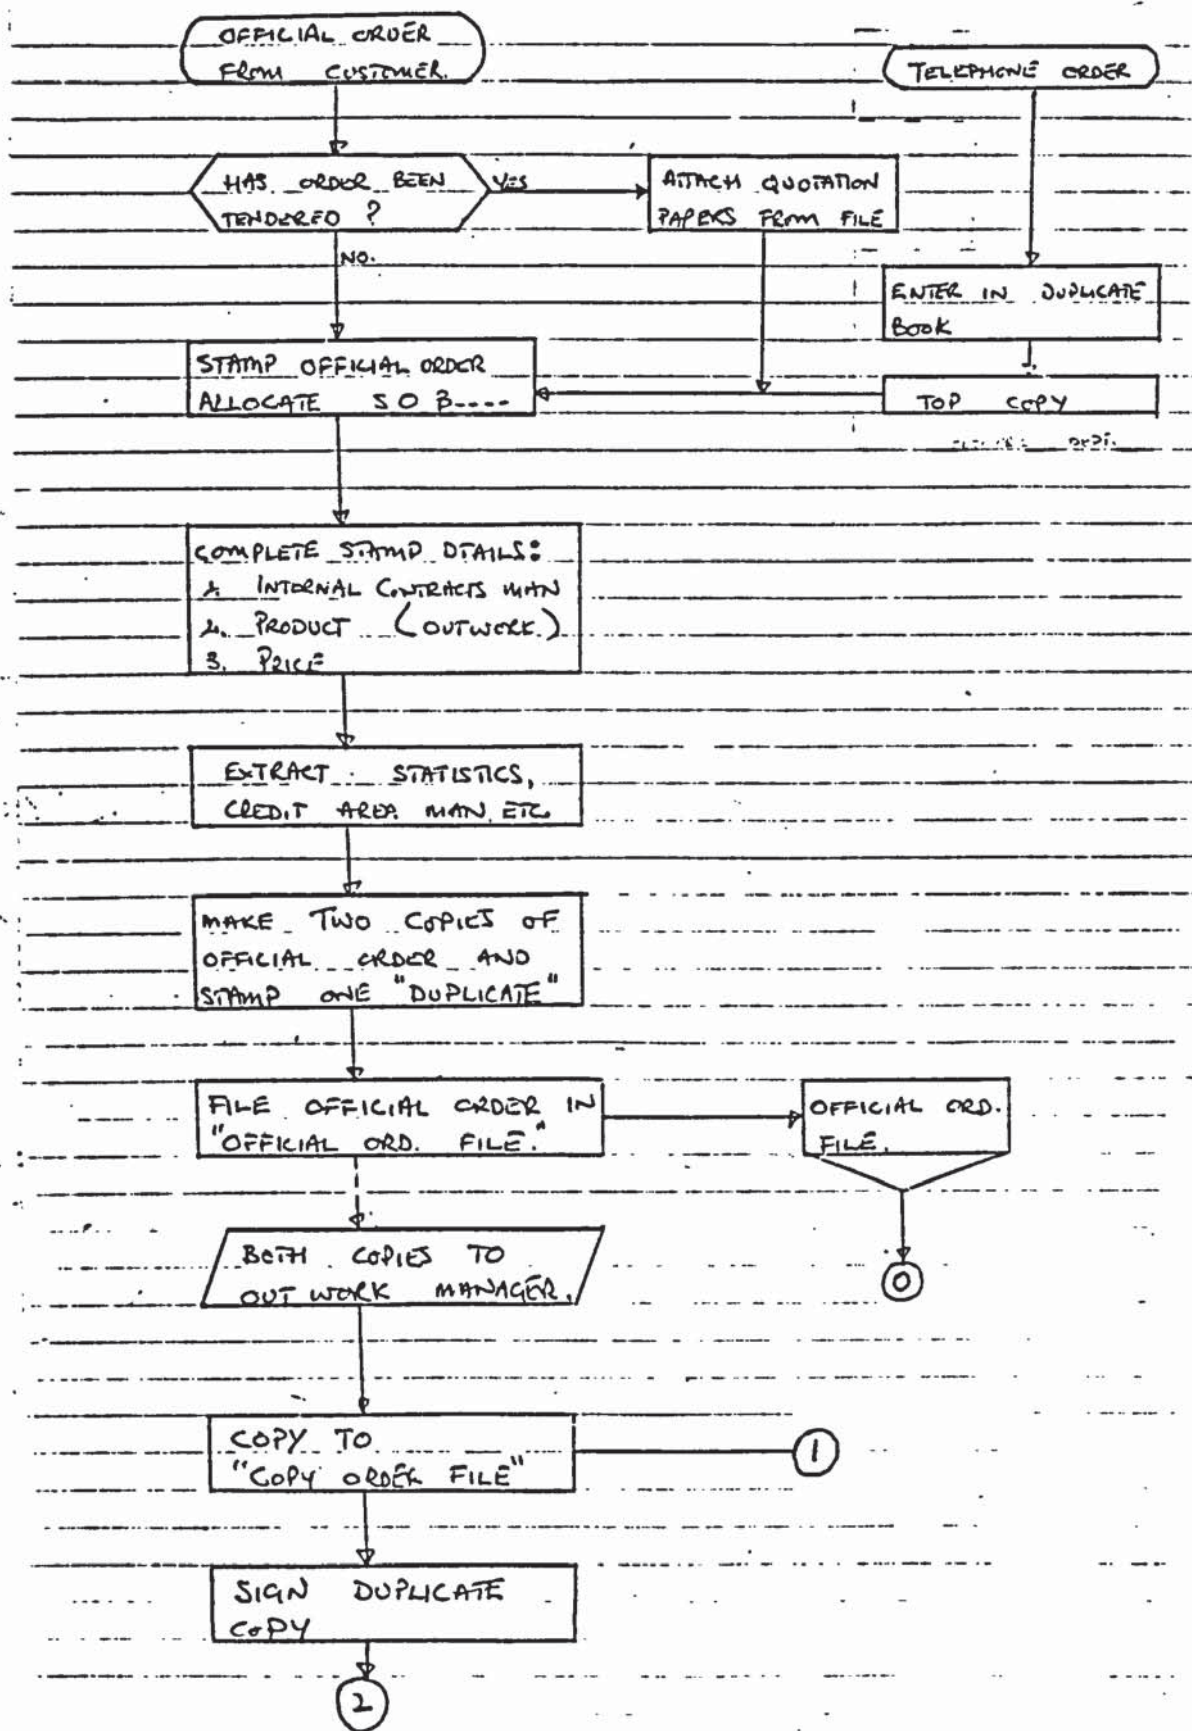 OFFICIAL ORDER
FROM CUSTOMER.
TELEPHONE ORDER
HAS ORDER BEEN
TENDERED ?
YES
ATTACH QUOTATION
PAPERS FROM FILE
NO.
ENTER IN DUPLICATE
BOOK
STAMP OFFICIAL ORDER
ALLOCATE S O B----
TOP COPY
DEPT.
COMPLETE STAMP DTAILS:
1. INTERNAL CONTRACTS MAN
2. PRODUCT (OUTWORK.)
3. PRICE
EXTRACT STATISTICS,
CREDIT AREA MAN. ETC.
MAKE TWO COPIES OF
OFFICIAL ORDER AND
STAMP ONE "DUPLICATE"
FILE OFFICIAL ORDER IN
"OFFICIAL ORD. FILE."
OFFICIAL ORD.
FILE.
BOTH COPIES TO
OUT WORK MANAGER.
0
COPY TO
"COPY ORDER FILE"
1
SIGN DUPLICATE
COPY
2